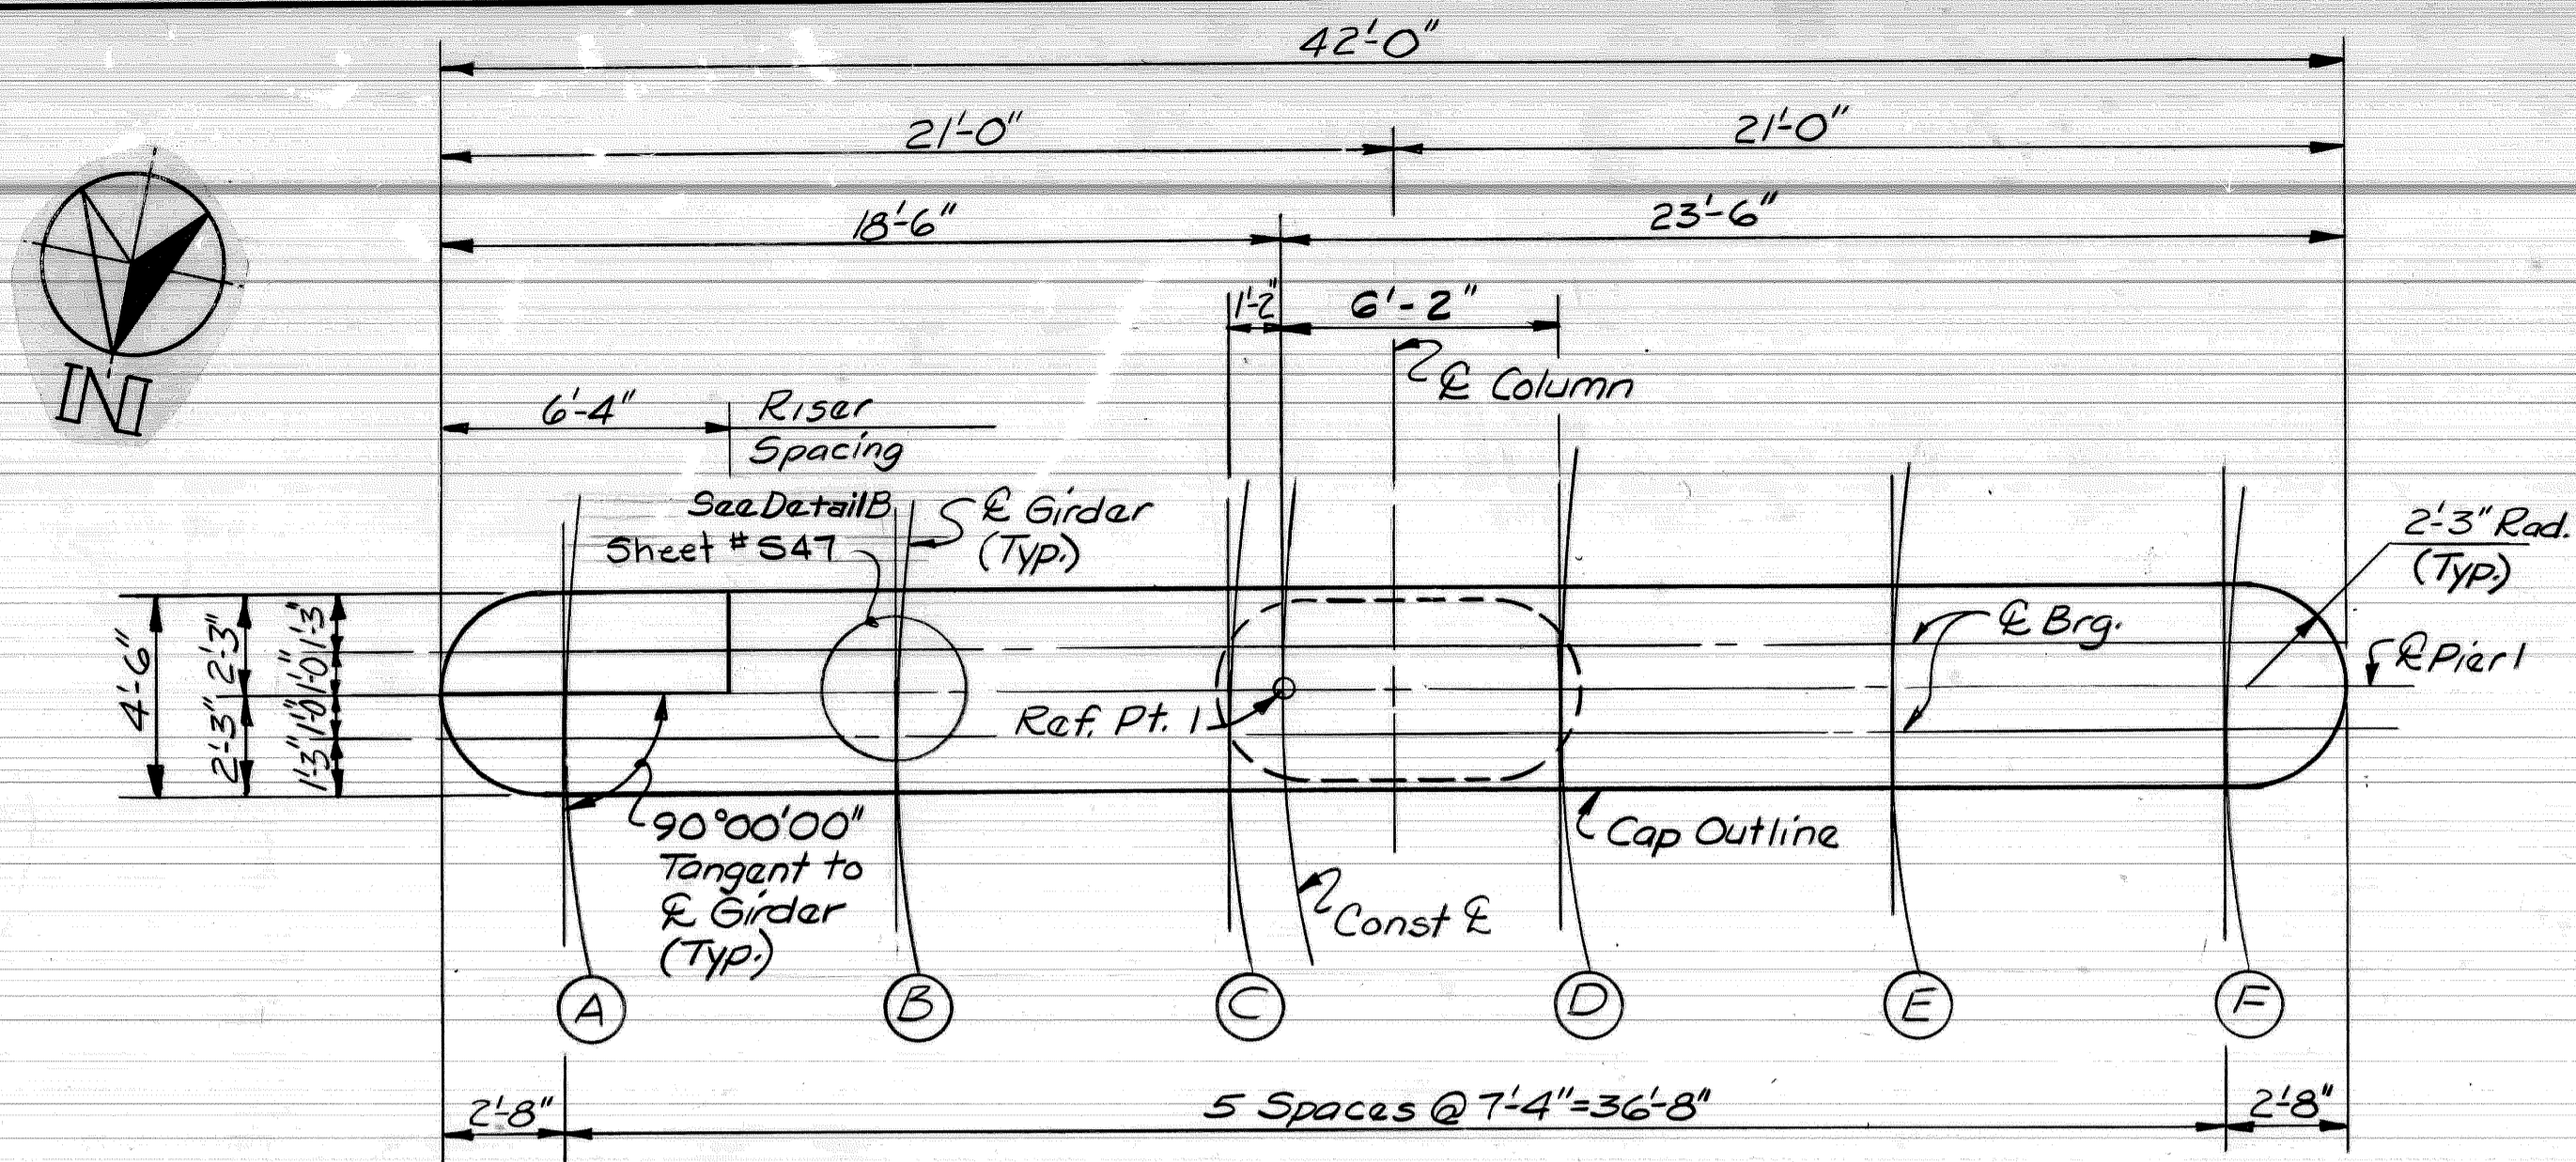 42'-0"
21'-0"
21'-0"
18'-6"
23'-6"
1'-2"
6'-2"
℄ Column
N
6'-4"
Riser
Spacing
See Detail B
Sheet # S47
℄ Girder
(Typ.)
2'-3" Rad.
(Typ.)
4'-6"
2'-3"
2'-3"
1'-3"
1'-0"
1'-0"
1'-3"
℄ Brg.
℄ Pier 1
Ref. Pt. 1
90°00'00"
Tangent to
℄ Girder
(Typ.)
Cap Outline
Const ℄
A
B
C
D
E
F
2'-8"
5 Spaces @ 7'-4"=36'-8"
2'-8"